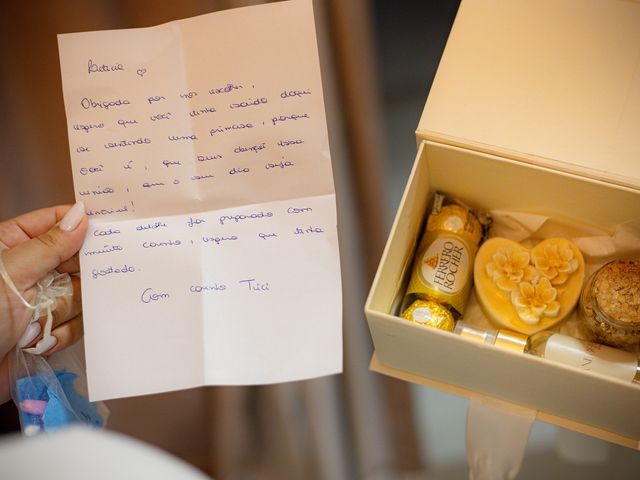 Letícia
Obrigada por nos escolher,
espero que você tenha saído daqui
se sentindo uma princesa, porque
você é, que Deus abençoe essa
união, e que o seu dia seja
incrível!
Cada detalhe foi preparado com
muito carinho, espero que tenha
gostado.
Com carinho
FERRERO
ROCHER